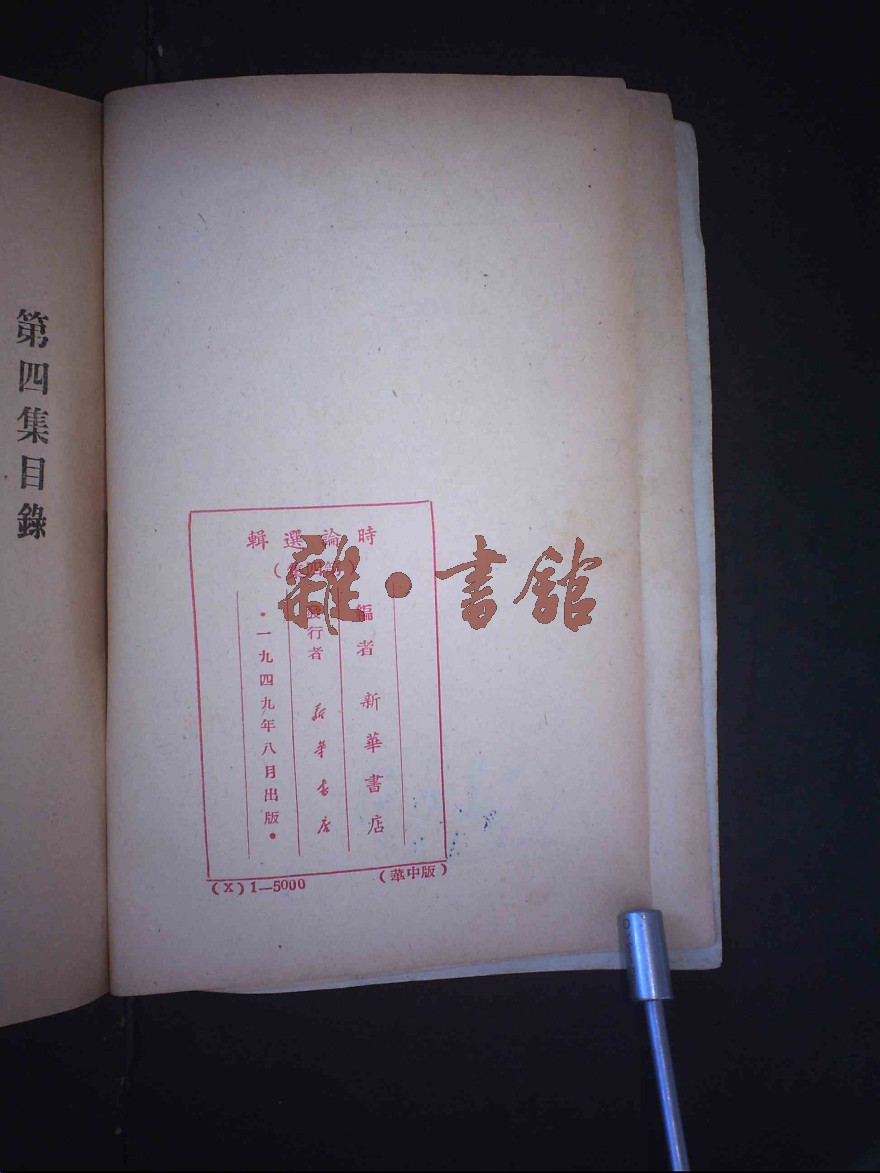 時論選輯
(第四集)
編者 新華書店
發行者 新華書店
•一九四九年八月出版•
(華中版)
(X)1—5000
第四集目錄
雜•書館